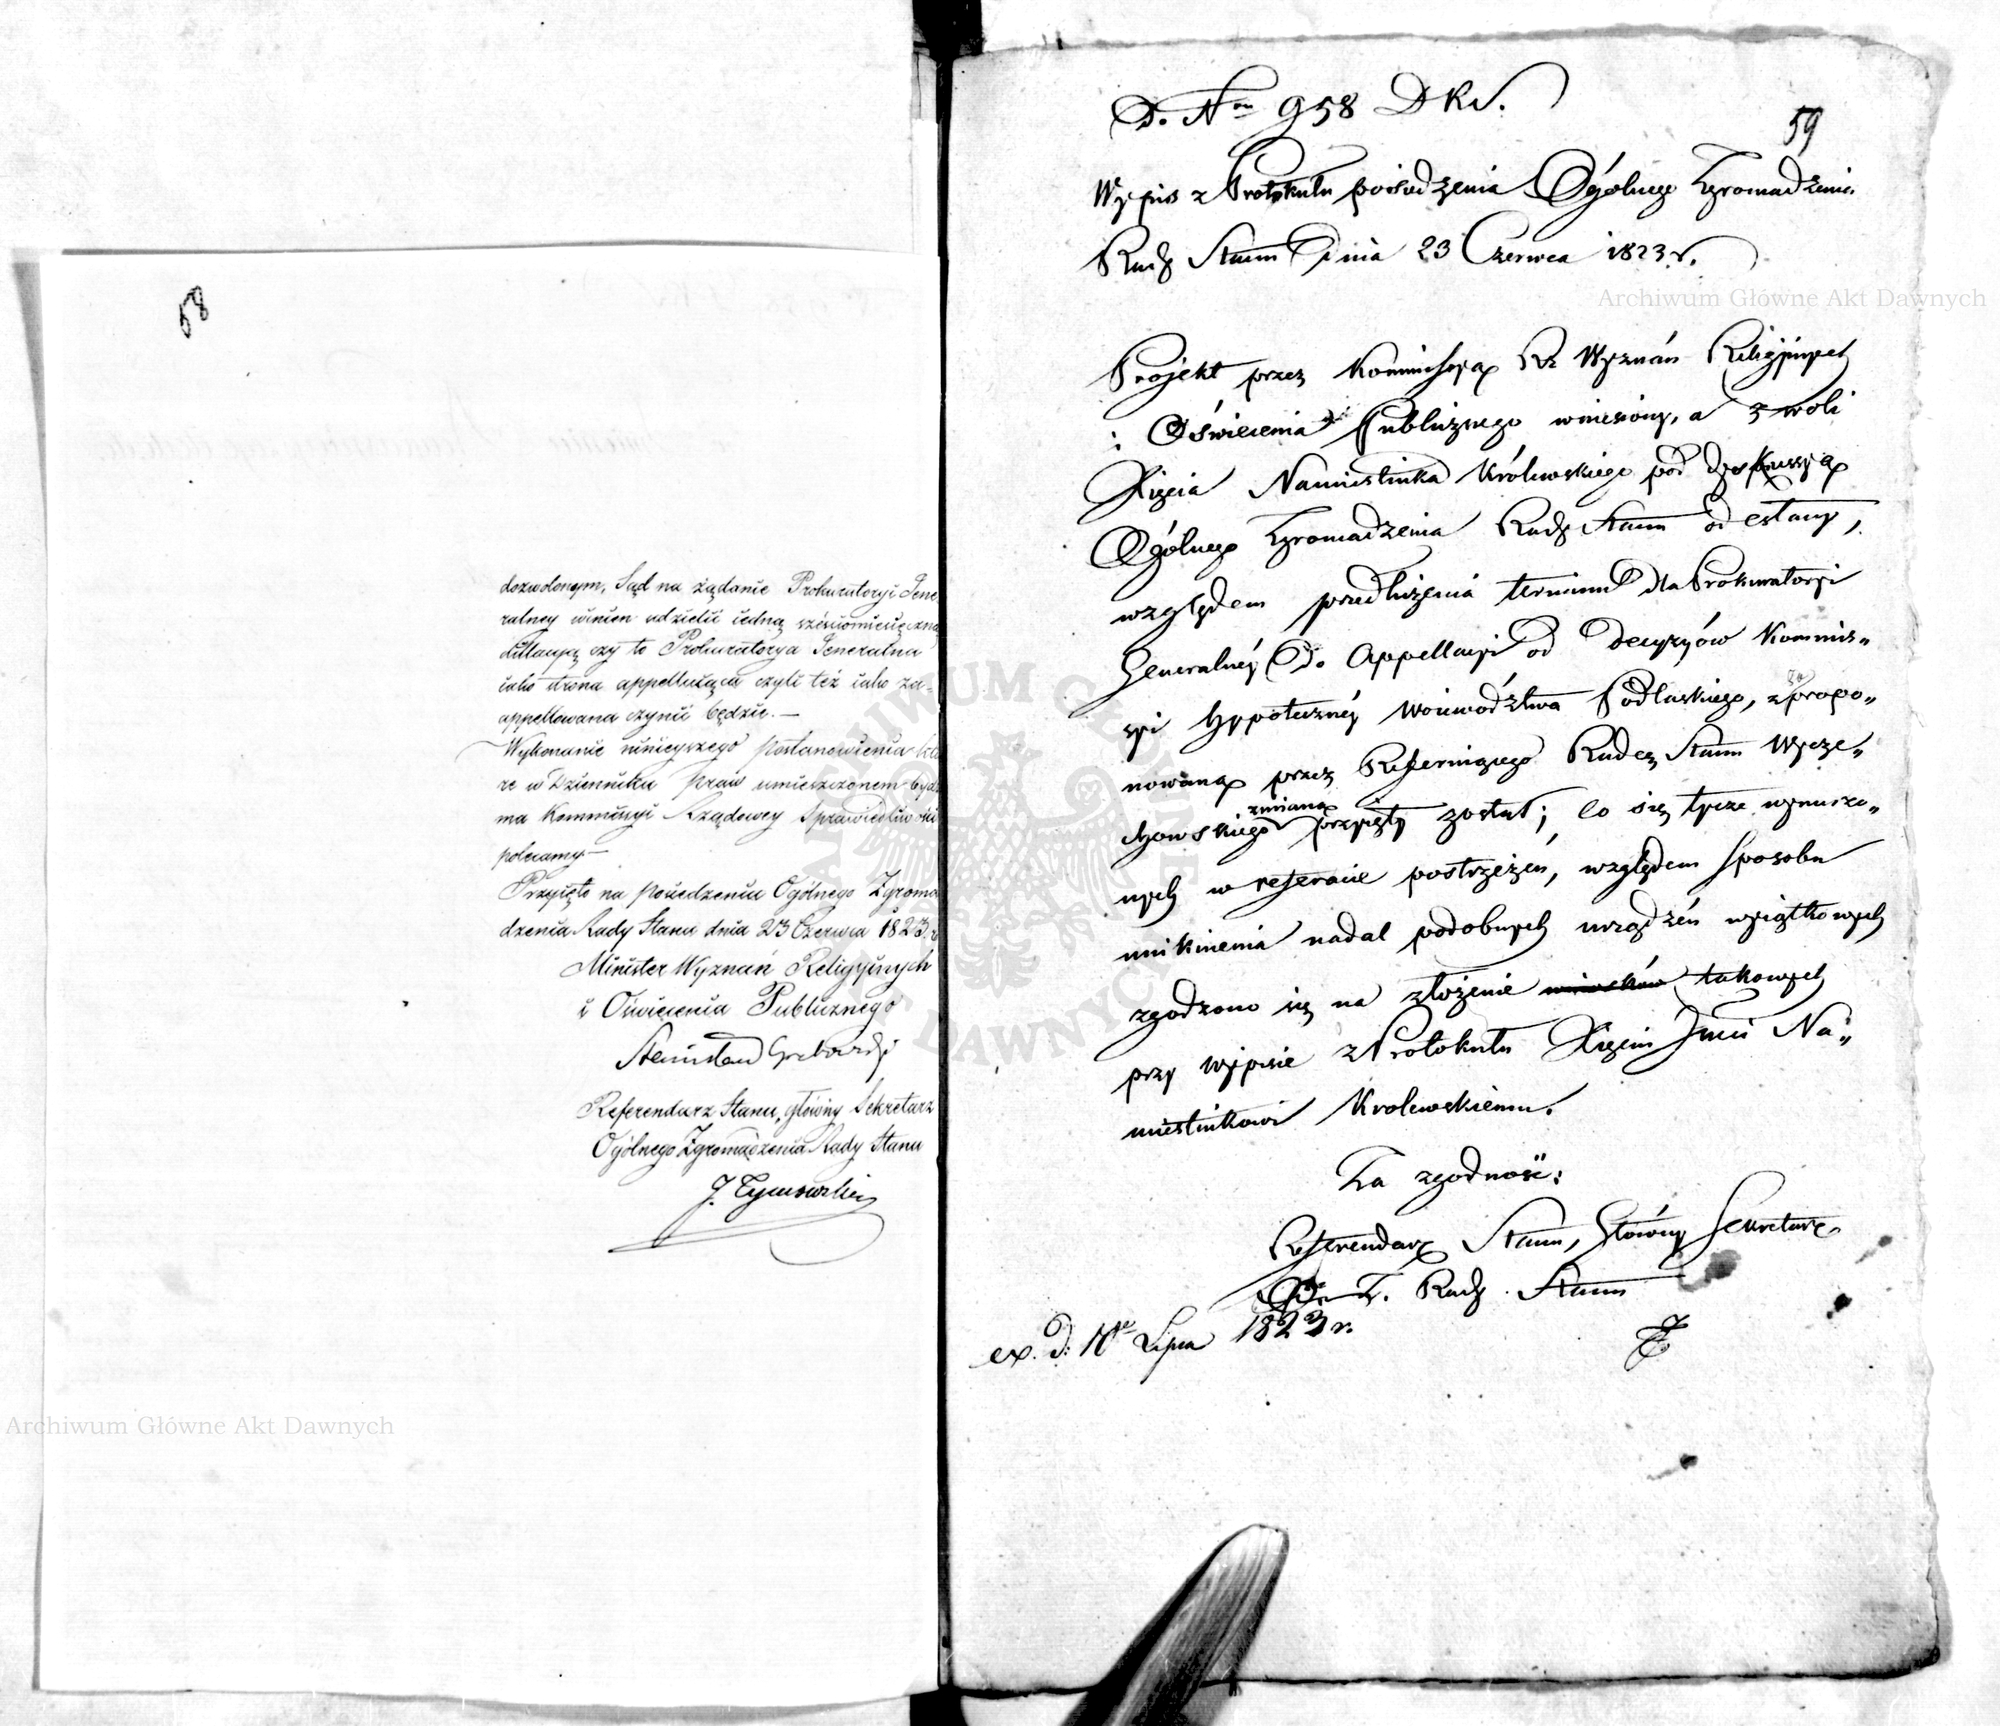 58
dozwolonym, Sąd na żądanie Prokuratoryi Gene
ralney winien udzielić iedną sześciomiesięczną
dillacyą czy to Prokuratorya Generalna
iako strona appelluiąca czyli też iako za-
appellowana czynić będzie.—
Wykonanie ninieyszego Postanowienia któ
re w Dzienniku Praw umieszczonem będz
ma Kommissyi Rządowey Sprawiedliwości
polecamy—
Przyięto na Posiedzeniu Ogólnego Zgroma
dzenia Rady Stanu dnia 23 Czerwca 1823 r
Minister Wyznań Religyinych
i Oświecenia Publicznego
Stanisław Grabowski
Referendarz Stanu, główny Sekretarz
Ogólnego Zgromadzenia Rady Stanu
J. Tymowski
D. Nro 958 DKV.
59
Wypis z Protokułu posiedzenia Ogólnego Zgromadzenia
Rady Stanu Dnia 23 Czerwca 1823 r.
Projekt przez Kommissyą Rz Wyznań Religijnych
i Oświecenia Publicznego wniesiony, a z woli
Xięcia Namiestnika Królewskiego pod dyskussyą
Ogólnego Zgromadzenia Rady Stanu odesłany,
względem przedłużenia terminu dla Prokuratoryi
Generalnéy Do Appellacyi od Decyzyów Kommis„
syi hypotecznéy Woiewództwa Podlaskiego, z propo„
nowaną przez Referuiącego Radcę Stanu Wycze„
chowskiego zmianą przyięty został; co się tycze wynurzo„
nych w referacie postrzeżeń, względem sposobu
uniknienia nadal podobnych urządzeń wyiątkowych
zgodzono się na złożenie wniosków takowych
przy wypisie z Protokułu Xięciu Jmci Na„
miestnikowi Królewskiemu.
Za zgodność:
Referendarz Stanu, Główny Sekretarz
O. Z. Rady Stanu
ex. d: Lipca 1823 r.